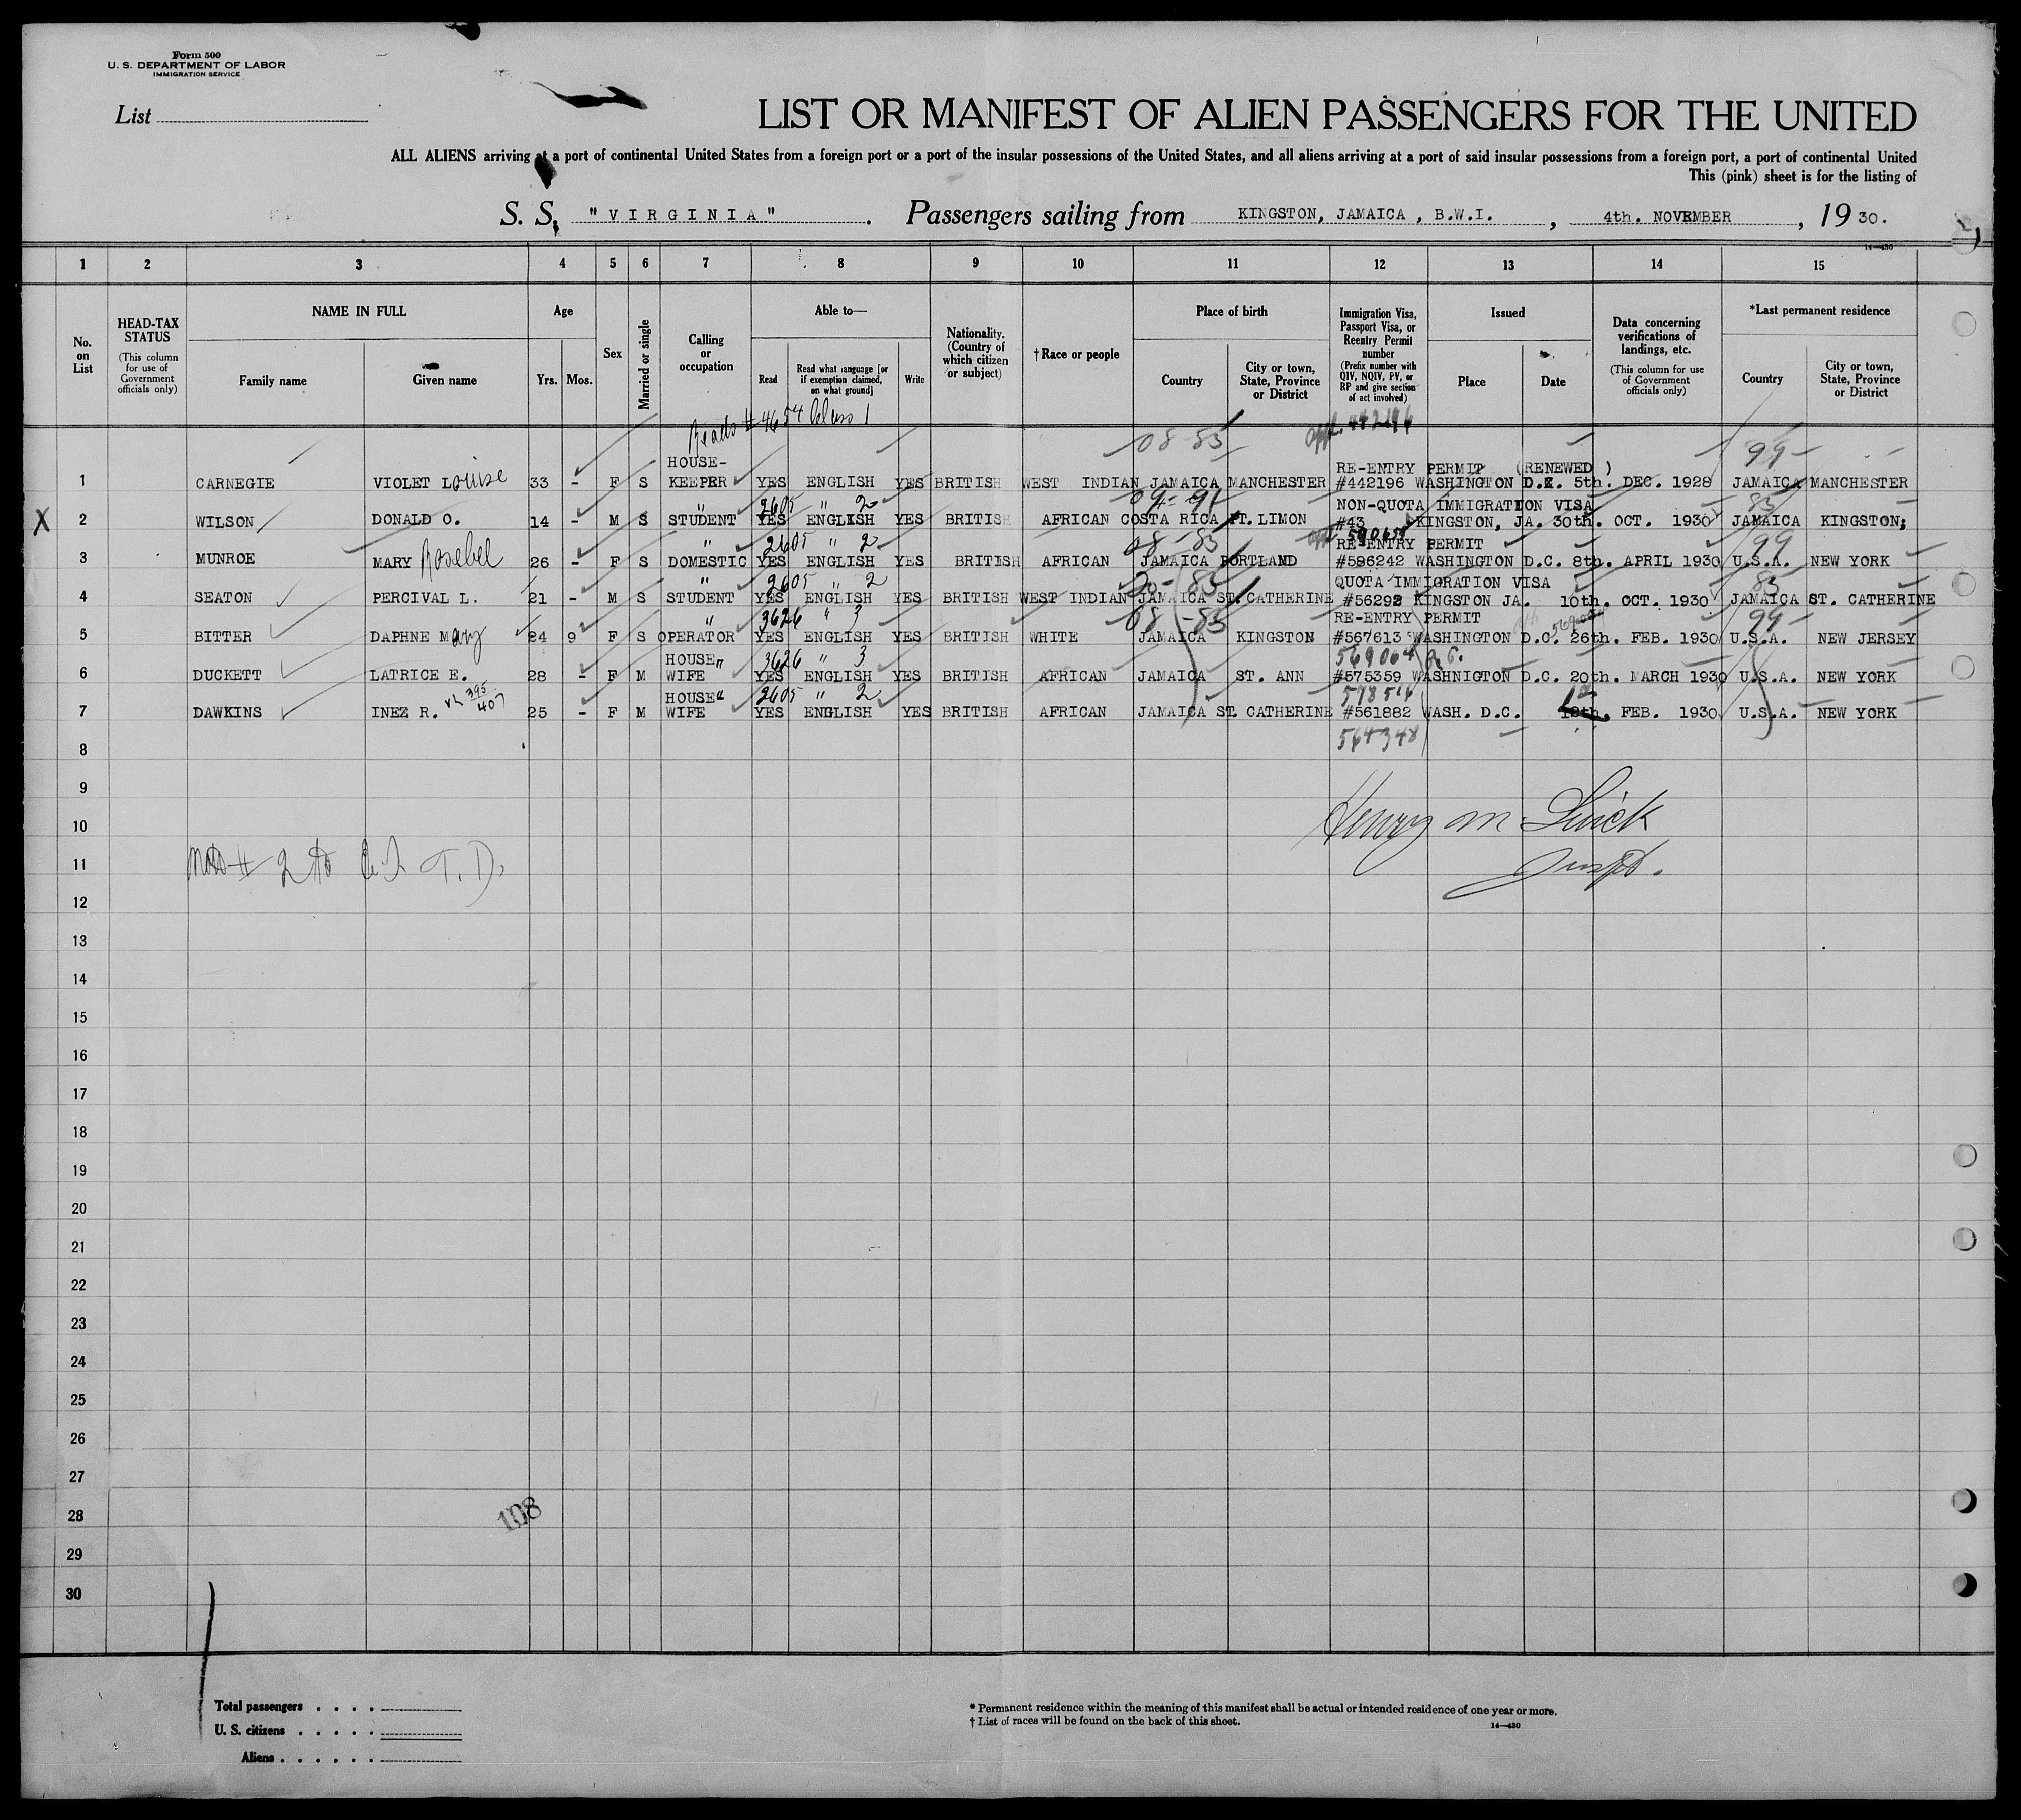 Form 500
U. S. DEPARTMENT OF LABOR
IMMIGRATION SERVICE
List
LIST OR MANIFEST OF ALIEN PASSENGERS FOR THE UNITED
ALL ALIENS arriving at a port of continental United States from a foreign port or a port of the insular possessions of the United States, and all aliens arriving at a port of said insular possessions from a foreign port, a port of continental United
This (pink) sheet is for the listing of
S. S. "VIRGINIA" . Passengers sailing from KINGSTON, JAMAICA , B.W.I. , 4th. NOVEMBER , 19 30.
14—430
1 2 3 4 5 6 7 8 9 10 11 12 13 14 15
No. on List
HEAD-TAX STATUS (This column for use of Government officials only)
NAME IN FULL
Family name Given name
Age
Yrs. Mos.
Sex
Married or single
Calling or occupation
Able to—
Read Read what language [or if exemption claimed, on what ground] Write
Nationality. (Country of which citizen or subject)
†Race or people
Place of birth
Country City or town, State, Province or District
Immigration Visa, Passport Visa, or Reentry Permit number (Prefix number with QIV, NQIV, PV, or RP and give section of act involved)
Issued
Place Date
Data concerning verifications of landings, etc. (This column for use of Government officials only)
*Last permanent residence
Country City or town, State, Province or District
Reads # 4654 Class 1
08-83 442196 99
HOUSE- RE-ENTRY PERMIT (RENEWED )
1 CARNEGIE VIOLET Louise 33 - F S KEEPER YES ENGLISH YES BRITISH WEST INDIAN JAMAICA MANCHESTER #442196 WASHINGTON D.C. 5th. DEC. 1928 JAMAICA MANCHESTER
" 2605 " 2 09-91 NON-QUOTA IMMIGRATION VISA 83
X 2 WILSON DONALD O. 14 - M S STUDENT YES ENGLISH YES BRITISH AFRICAN COSTA RICA PT. LIMON #43 KINGSTON, JA. 30th. OCT. 1930 JAMAICA KINGSTON,
" 2605 " 2 08-83 RE-ENTRY PERMIT 99
3 MUNROE MARY Rosebel 26 - F S DOMESTIC YES ENGLISH YES BRITISH AFRICAN JAMAICA PORTLAND #586242 WASHINGTON D.C. 8th. APRIL 1930 U.S.A. NEW YORK
" 2605 " 2 83 QUOTA IMMIGRATION VISA 83
4 SEATON PERCIVAL L. 21 - M S STUDENT YES ENGLISH YES BRITISH WEST INDIAN JAMAICA ST. CATHERINE #56292 KINGSTON JA. 10th. OCT. 1930 JAMAICA ST. CATHERINE
" 3626 " 3 08-83 RE-ENTRY PERMIT 99
5 BITTER DAPHNE Mary 24 9 F S OPERATOR YES ENGLISH YES BRITISH WHITE JAMAICA KINGSTON #567613 WASHINGTON D.C. 26th. FEB. 1930 U.S.A. NEW JERSEY
HOUSE" 3626 " 3 569064
6 DUCKETT LATRICE E. 28 - F M WIFE YES ENGLISH YES BRITISH AFRICAN JAMAICA ST. ANN #575359 WASHNIGTON D.C. 20th. MARCH 1930 U.S.A. NEW YORK
395/407 HOUSE" 2605 " 2 578546
7 DAWKINS INEZ R. 25 - F M WIFE YES ENGLISH YES BRITISH AFRICAN JAMAICA ST. CATHERINE #561882 WASH. D.C. 12th. FEB. 1930 U.S.A. NEW YORK
8 564348
9
10 Henry M.
11 Inspt.
12
13
14
15
16
17
18
19
20
21
22
23
24
25
26
27
28 108
29
30
Total passengers . . . .
U. S. citizens . . . . .
Aliens . . . . . .
* Permanent residence within the meaning of this manifest shall be actual or intended residence of one year or more.
† List of races will be found on the back of this sheet.
14—430